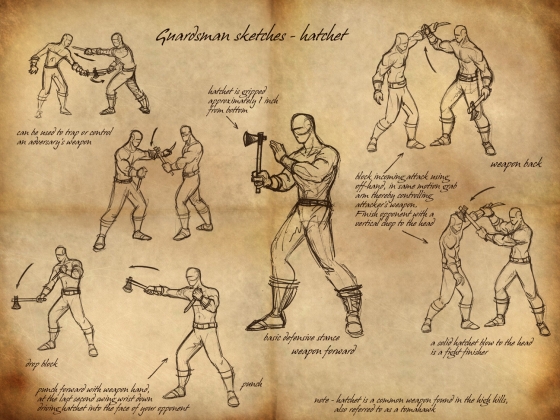 Guardsman sketches - hatchet
hatchet is gripped
approximately 1 inch
from bottom
can be used to trap or control
an adversary's weapon
weapon back
block incoming attack using
off-hand, in same motion grab
arm thereby controlling
attacker's weapon.
Finish opponent with a
vertical chop to the head
drop block
basic defensive stance
weapon forward
a solid hatchet blow to the head
is a fight finisher
punch
punch forward with weapon hand,
at the last second swing wrist down
driving hatchet into the face of your opponent
note - hatchet is a common weapon found in the high hills,
also referred to as a tomahawk